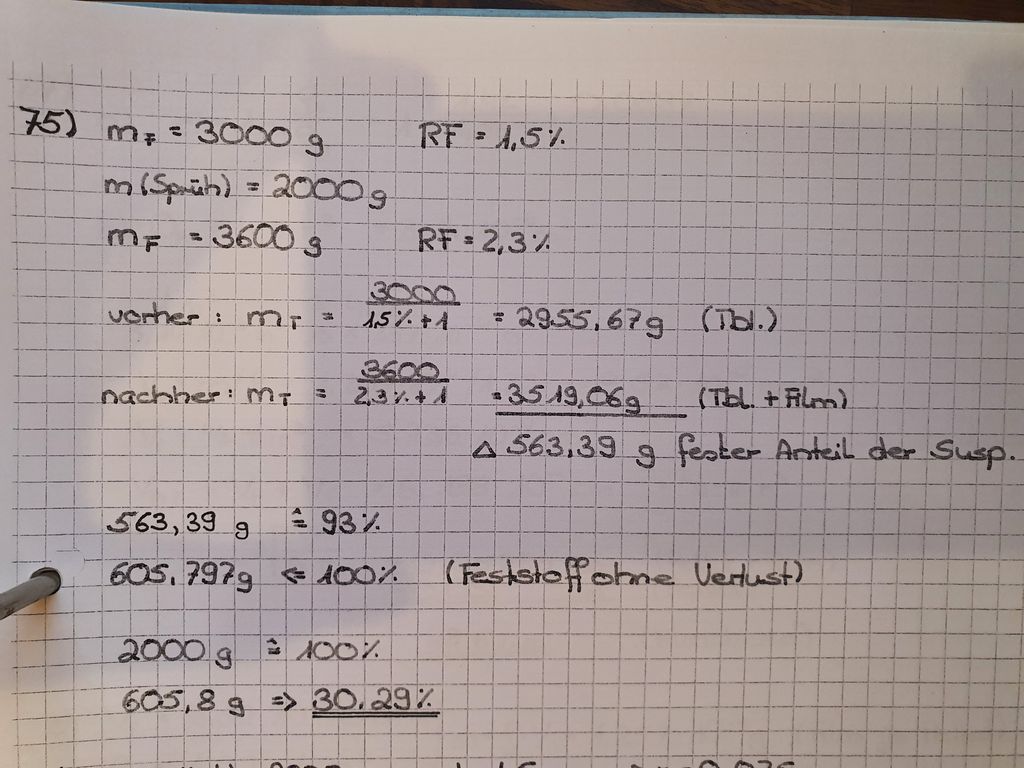 75) m_F = 3000 g RF = 1,5%
m (Sprüh) = 2000 g
m_F = 3600 g RF = 2,3%
vorher: m_T = 3000 / 1,5% + 1 = 2955,67g (Tbl.)
nachher: m_T = 3600 / 2,3% + 1 = 3519,06g (Tbl. + Film)
Δ 563,39 g fester Anteil der Susp.
563,39 g ≙ 93%
605,797g ⇐ 100% (Feststoff ohne Verlust)
2000 g ≙ 100%
605,8 g => 30,29%